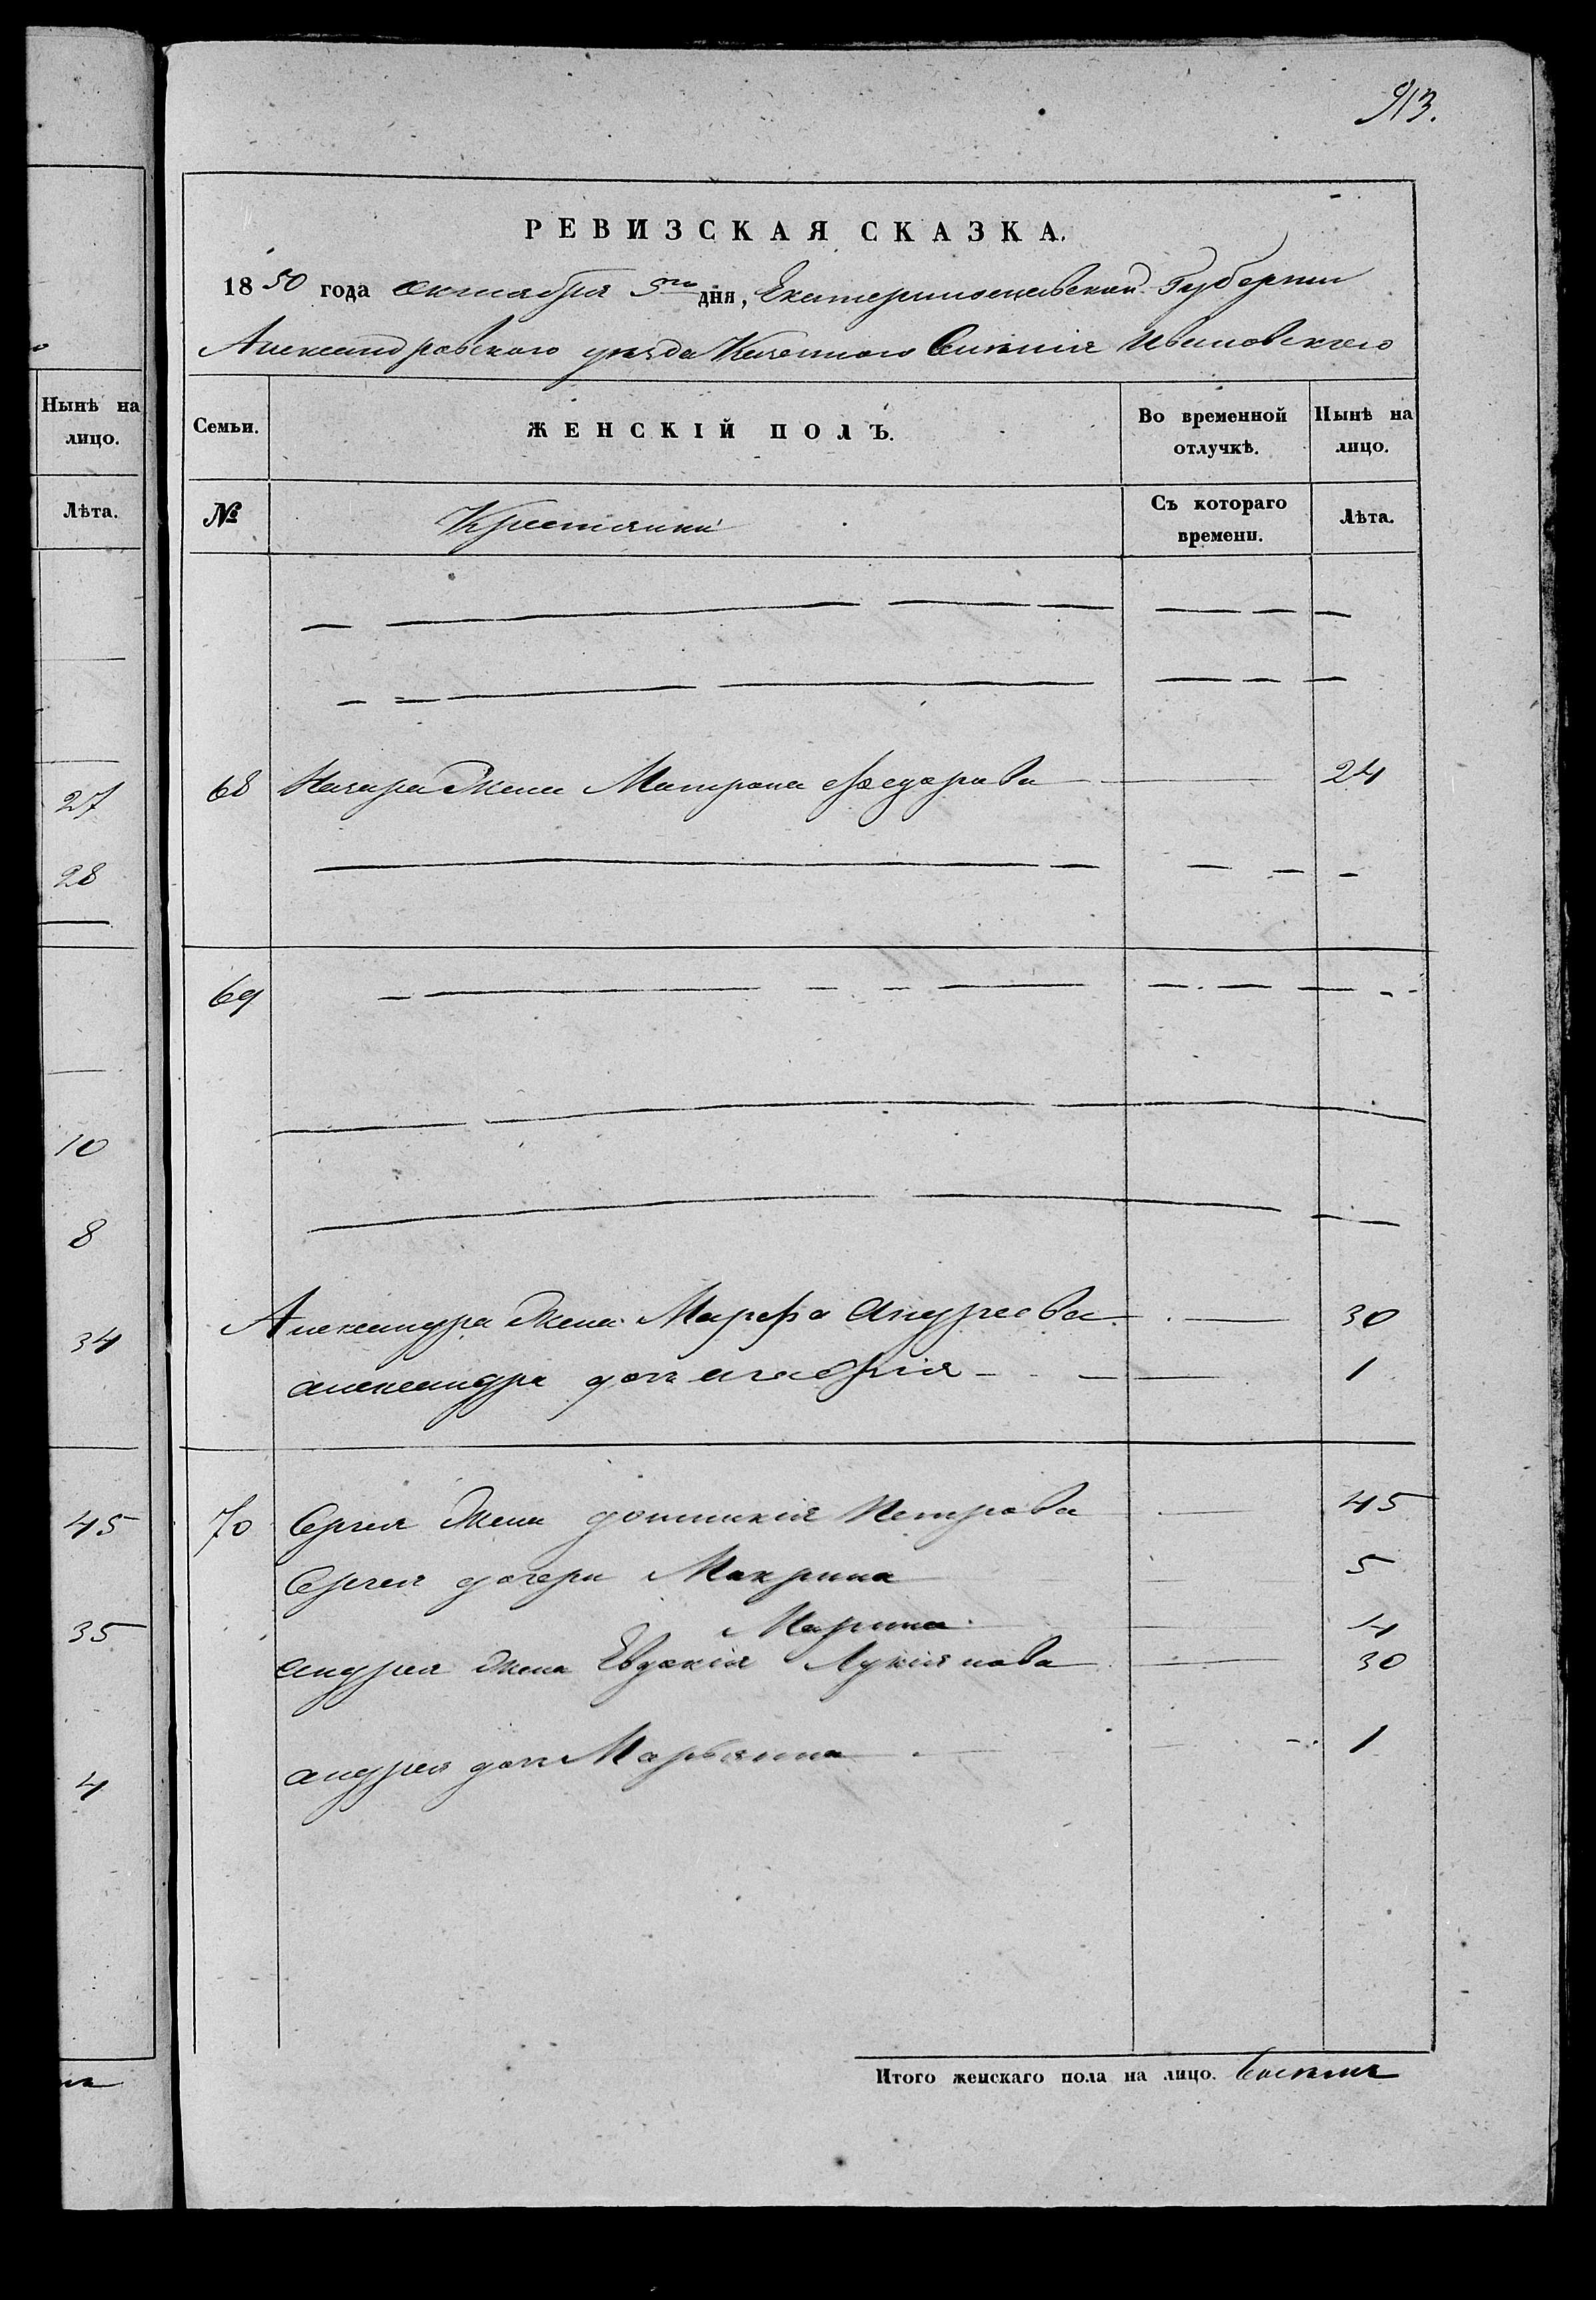 913.
РЕВИЗСКАЯ СКАЗКА.
1850 года октября 5го дня, Екатеринославской Губернии
Александровского уезда Казенного Селения Ивановского
Нынѣ на лицо.
Лѣта.
27
28
10
8
34
45
35
4
Семьи. ЖЕНСКІЙ ПОЛЪ. Во временной отлучкѣ. Нынѣ на лицо.
№ Крестянки Съ котораго времени. Лѣта.
68 Назара жена Матрона Федорова 24
69
Александра жена Марфа Андреева 30
Александра дочь Агафия 1
70 Сергея жена Домникія Петрова 45
Сергея дочери Макрина 5
Марина 4
Андрея жена Евдокія Лукіянова 30
Андрея дочь Марьянна 1
Итого женскаго пола на лицо. Восемь